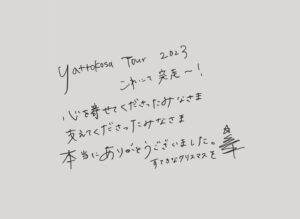 Yattokosa Tour 2023
これにて完走〜!
心を寄せてくださったみなさま
支えてくださったみなさま
本当にありがとうございました。
すてきなクリスマスを